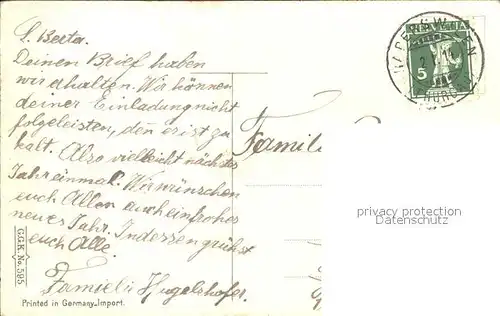 L. Berta.
Deinen Brief haben
wir erhalten. Wir können
deiner Einladung nicht
folgeleisten, den er ist zu
kalt. Also vielleicht nächstes
Jahr einmal. Wir wünschen
euch Allen auch ein frohes
neues Jahr. Indessen grüsst
euch Alle.
Familie Hugelshofer.
Famili
HELVETIA
5
privacy protection
Datenschutz
G.G.K. No. 595
Printed in Germany-Import.